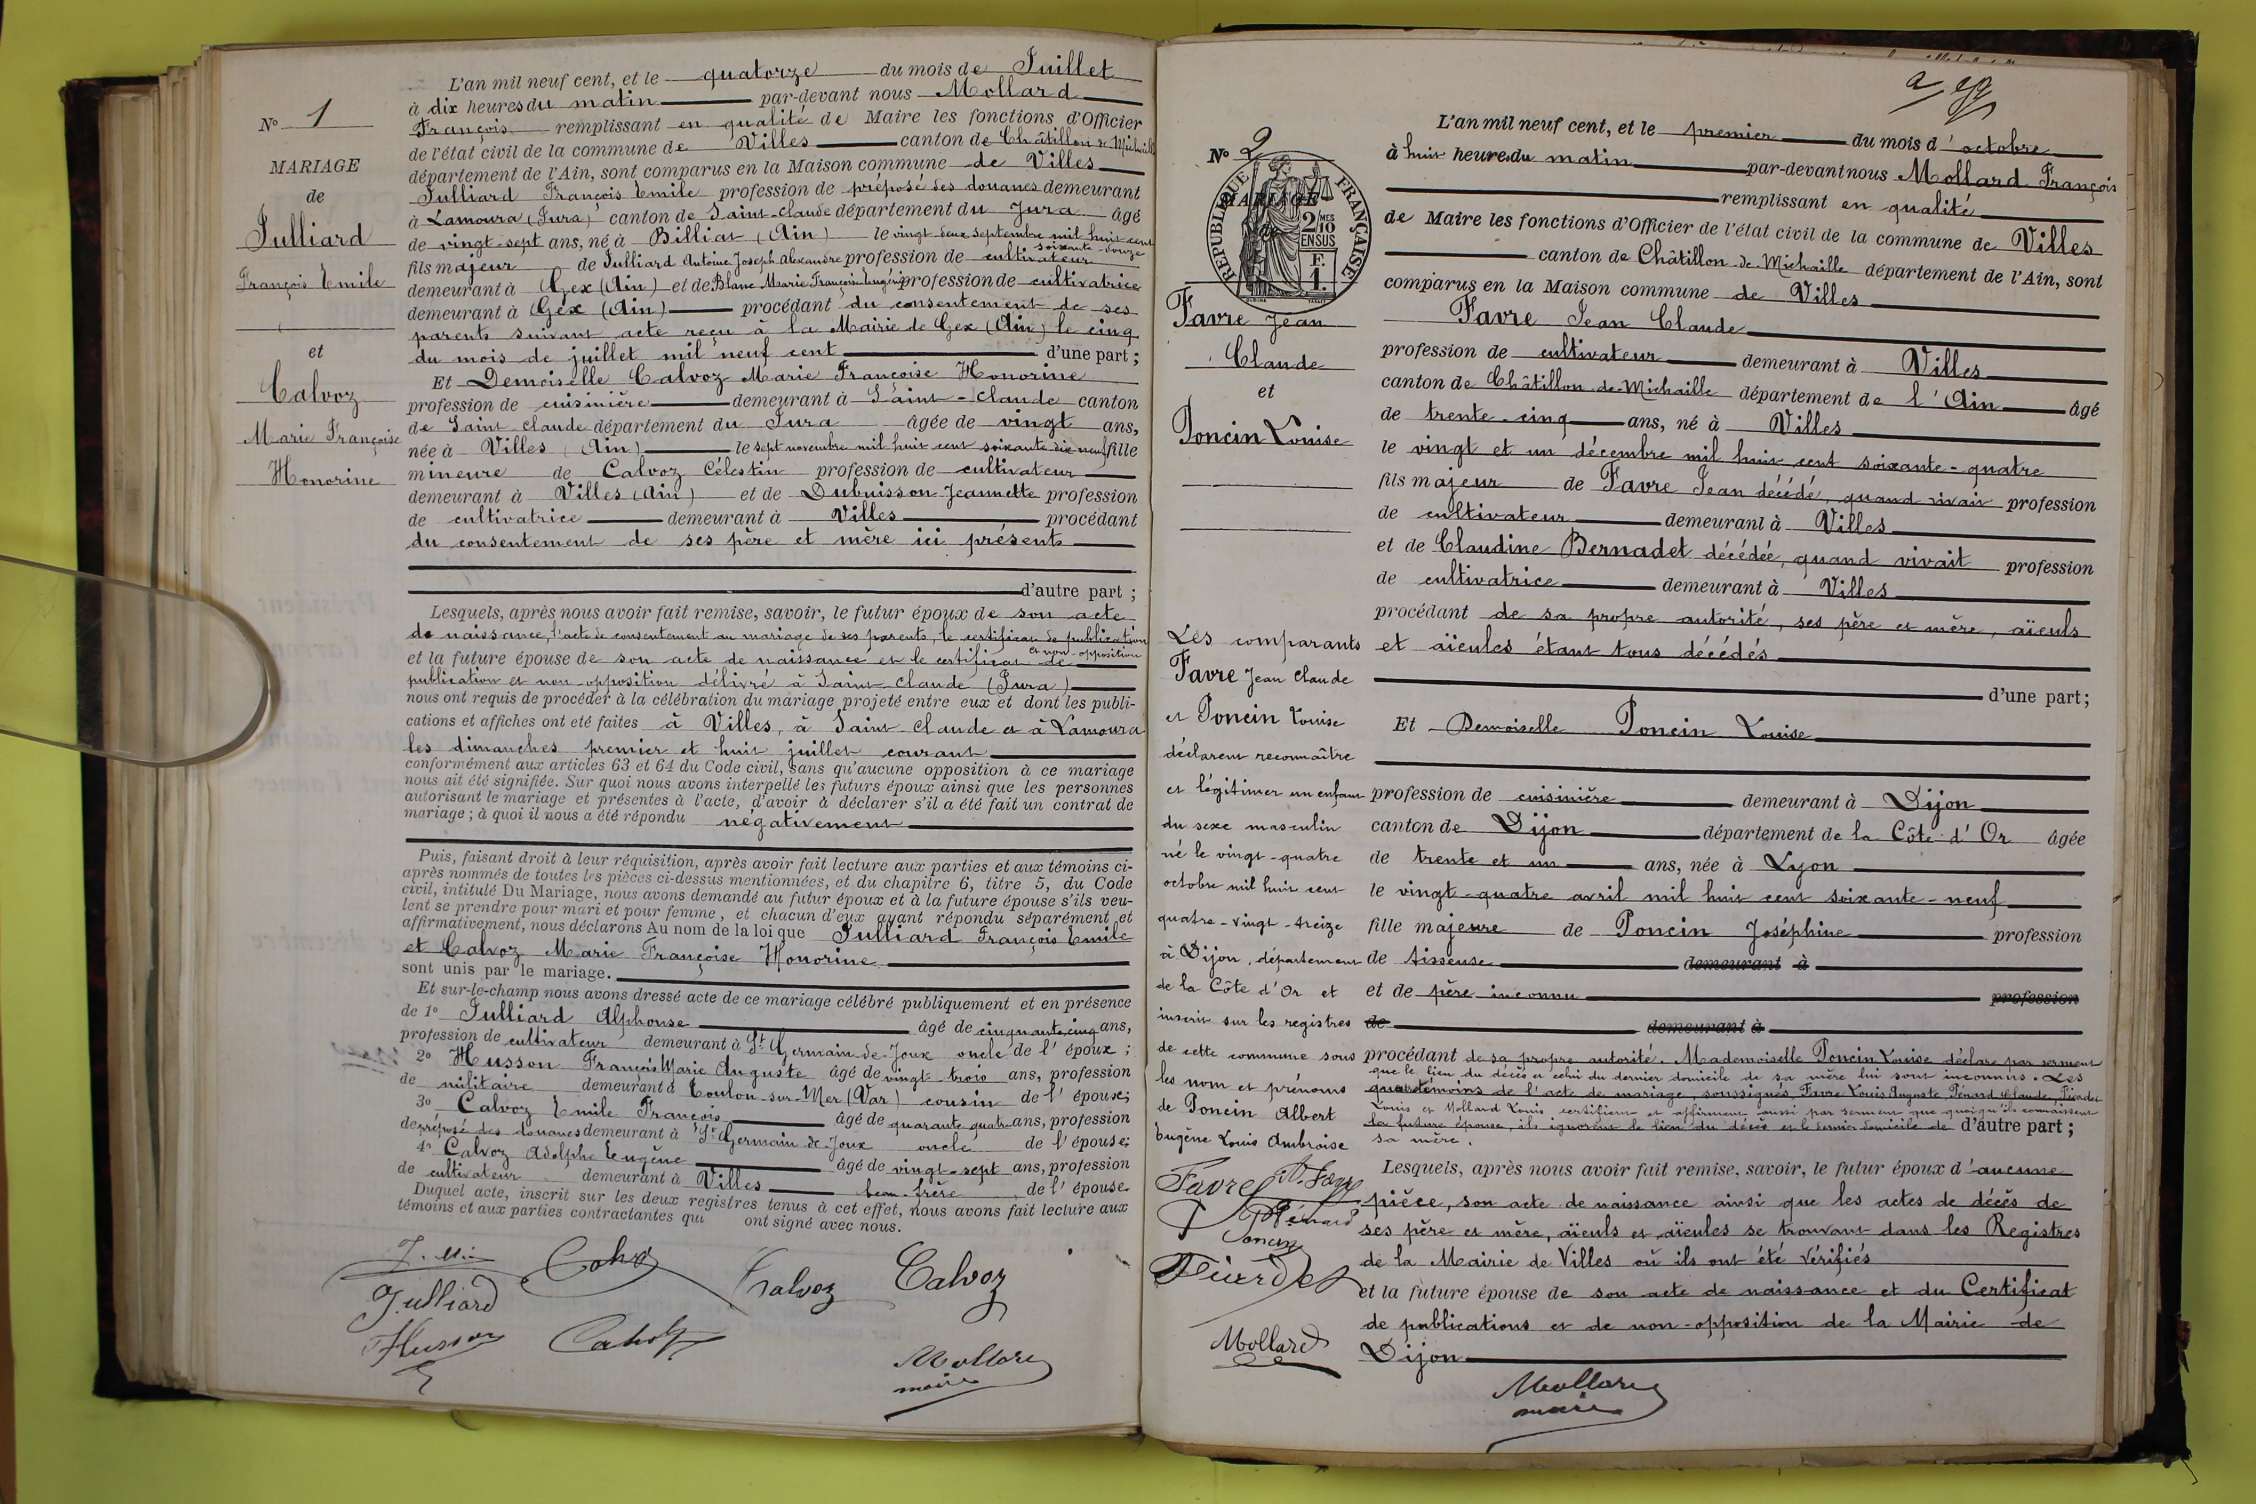 L'an mil neuf cent, et le quatorze du mois de Juillet
à dix heures du matin par-devant nous Mollard
François remplissant en qualité de Maire les fonctions d'Officier
de l'état civil de la commune de Villes canton de Châtillon de Michaille
département de l'Ain, sont comparus en la Maison commune de Villes
Julliard François Emile profession de préposé des douanes demeurant
à Lamoura (Jura) canton de Saint-Claude département du Jura âgé
de vingt-sept ans, né à Billiat (Ain) le vingt deux septembre mil huit cent
soixante-douze
fils majeur de Julliard Antoine Joseph Alexandre profession de cultivateur
demeurant à Gex (Ain) et de Blanc Marie Françoise Eugénie profession de cultivatrice
demeurant à Gex (Ain) procédant du consentement de ses
parents suivant acte reçu à la Mairie de Gex (Ain) le cinq
du mois de juillet mil neuf cent d'une part ;
Et Demoiselle Calvoz Marie Françoise Honorine
profession de cuisinière demeurant à Saint-Claude canton
de Saint Claude département du Jura âgée de vingt ans,
née à Villes (Ain) le sept novembre mil huit cent soixante dix neuf fille
mineure de Calvoz Célestin profession de cultivateur
demeurant à Villes (Ain) et de Dubuisson Jeannette profession
de cultivatrice demeurant à Villes procédant
du consentement de ses père et mère ici présents
d'autre part ;
Lesquels, après nous avoir fait remise, savoir, le futur époux de son acte
de naissance, l'acte de consentement au mariage de ses parents, le certificat de publication
et non-opposition
et la future épouse de son acte de naissance et le certificat de
publication et non opposition délivré à Saint-Claude (Jura)
nous ont requis de procéder à la célébration du mariage projeté entre eux et dont les publi-
cations et affiches ont été faites à Villes, à Saint Claude et à Lamoura
les dimanches premier et huit juillet courant
conformément aux articles 63 et 64 du Code civil, sans qu'aucune opposition à ce mariage
nous ait été signifiée. Sur quoi nous avons interpellé les futurs époux ainsi que les personnes
autorisant le mariage et présentes à l'acte, d'avoir à déclarer s'il a été fait un contrat de
mariage ; à quoi il nous a été répondu négativement
Puis, faisant droit à leur réquisition, après avoir fait lecture aux parties et aux témoins ci-
après nommés de toutes les pièces ci-dessus mentionnées, et du chapitre 6, titre 5, du Code
civil, intitulé Du Mariage, nous avons demandé au futur époux et à la future épouse s'ils veu-
lent se prendre pour mari et pour femme, et chacun d'eux ayant répondu séparément et
affirmativement, nous déclarons Au nom de la loi que Julliard François Emile
et Calvoz Marie Françoise Honorine
sont unis par le mariage.
Et sur-le-champ nous avons dressé acte de ce mariage célébré publiquement et en présence
de 1° Julliard Alphonse âgé de cinquante cinq ans,
profession de cultivateur demeurant à St Germain-de-Joux oncle de l'époux ;
2° Husson François Marie Auguste âgé de vingt-trois ans, profession
de militaire demeurant à Toulon-sur-Mer (Var) cousin de l'épouse ;
3° Calvoz Emile François âgé de quarante quatre ans, profession
de préposé des douanes demeurant à St Germain-de-Joux oncle de l'épouse ;
4° Calvoz Adolphe Eugène âgé de vingt-sept ans, profession
de cultivateur demeurant à Villes beau-frère de l'épouse.
Duquel acte, inscrit sur les deux registres tenus à cet effet, nous avons fait lecture aux
témoins et aux parties contractantes qui ont signé avec nous.
Calvoz Calvoz
Julliard
Husson
Mollard
maire
N° 1
MARIAGE
de
Julliard
François Emile
et
Calvoz
Marie Françoise
Honorine
L'an mil neuf cent, et le premier du mois d'octobre
à huit heures du matin par-devant nous Mollard François
remplissant en qualité
de Maire les fonctions d'Officier de l'état civil de la commune de Villes
canton de Châtillon-de-Michaille département de l'Ain, sont
comparus en la Maison commune de Villes
Favre Jean Claude
profession de cultivateur demeurant à Villes
canton de Châtillon-de-Michaille département de l'Ain âgé
de trente-cinq ans, né à Villes
le vingt et un décembre mil huit cent soixante-quatre
fils majeur de Favre Jean décédé, quand vivait profession
de cultivateur demeurant à Villes
et de Claudine Bernadet décédée, quand vivait profession
de cultivatrice demeurant à Villes
procédant de sa propre autorité, ses père et mère, aïeuls
et aïeules étant tous décédés
d'une part ;
Et Demoiselle Poncin Louise
profession de cuisinière demeurant à Dijon
canton de Dijon département de la Côte d'Or âgée
de trente et un ans, née à Lyon
le vingt-quatre avril mil huit cent soixante-neuf
fille majeure de Poncin Joséphine profession
de tisseuse demeurant à
et de père inconnu profession
de demeurant à
procédant de sa propre autorité. Mademoiselle Poncin Louise déclare par serment
que le lieu du décès et celui du dernier domicile de sa mère lui sont inconnus. Les
quatre témoins de l'acte de mariage, soussignés, Favre Louis Auguste, Pénard Claude,
Louis et Mollard Louis certifient et affirment aussi par serment que quoiqu'ils connaissent
la future épouse, ils ignorent le lieu du décès et le dernier domicile de d'autre part ;
sa mère.
Lesquels, après nous avoir fait remise, savoir, le futur époux d'aucune
pièce, son acte de naissance ainsi que les actes de décès de
ses père et mère, aïeuls et aïeules se trouvant dans les Registres
de la Mairie de Villes où ils ont été vérifiés
et la future épouse de son acte de naissance et du Certificat
de publications et de non-opposition de la Mairie de
Dijon
Mollard
maire
N° 2
MARIAGE
de
RÉPUBLIQUE FRANÇAISE
2/10
MES
EN SUS
F.
1.
Favre Jean
Claude
et
Poncin Louise
Les comparants
Favre Jean Claude
et Poncin Louise
déclarent reconnaître
et légitimer un enfant
du sexe masculin
né le vingt-quatre
octobre mil huit cent
quatre-vingt-treize
à Dijon, département
de la Côte d'Or et
inscrit sur les registres
de cette commune sous
les nom et prénoms
de Poncin Albert
Eugène Louis Ambroise
Favre
Pénard
Poncin
Mollard